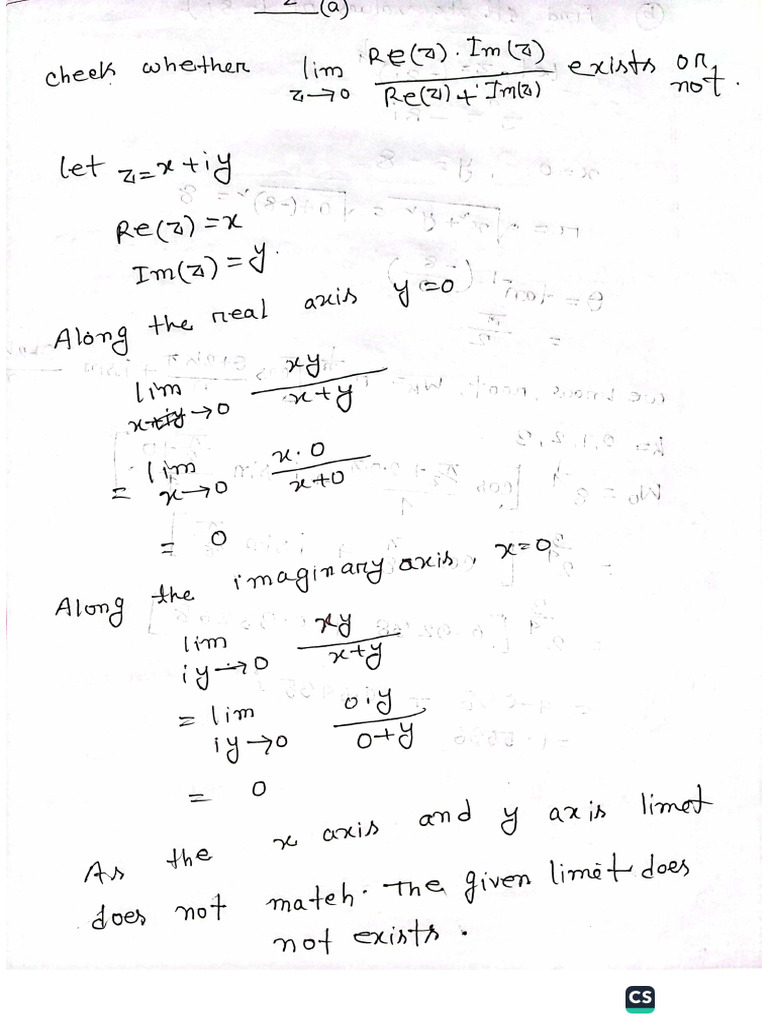 2 (a)
check whether lim z→0 Re(z). Im(z) / Re(z) + Im(z) exists or not.
Let z = x + iy
Re(z) = x
Im(z) = y.
Along the real axis y = 0
lim x+iy→0 xy / x+y
= lim x→0 x·0 / x+0
= 0
Along the imaginary axis, x=0
lim iy→0 xy / x+y
= lim iy→0 0·y / 0+y
= 0
As the x axis and y axis limet
does not match. The given limit does
not exists.
CS